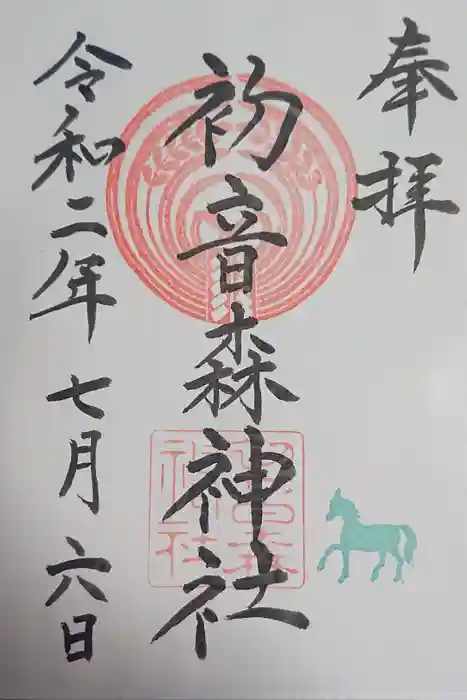 奉拝
初音森神社
令和二年七月六日